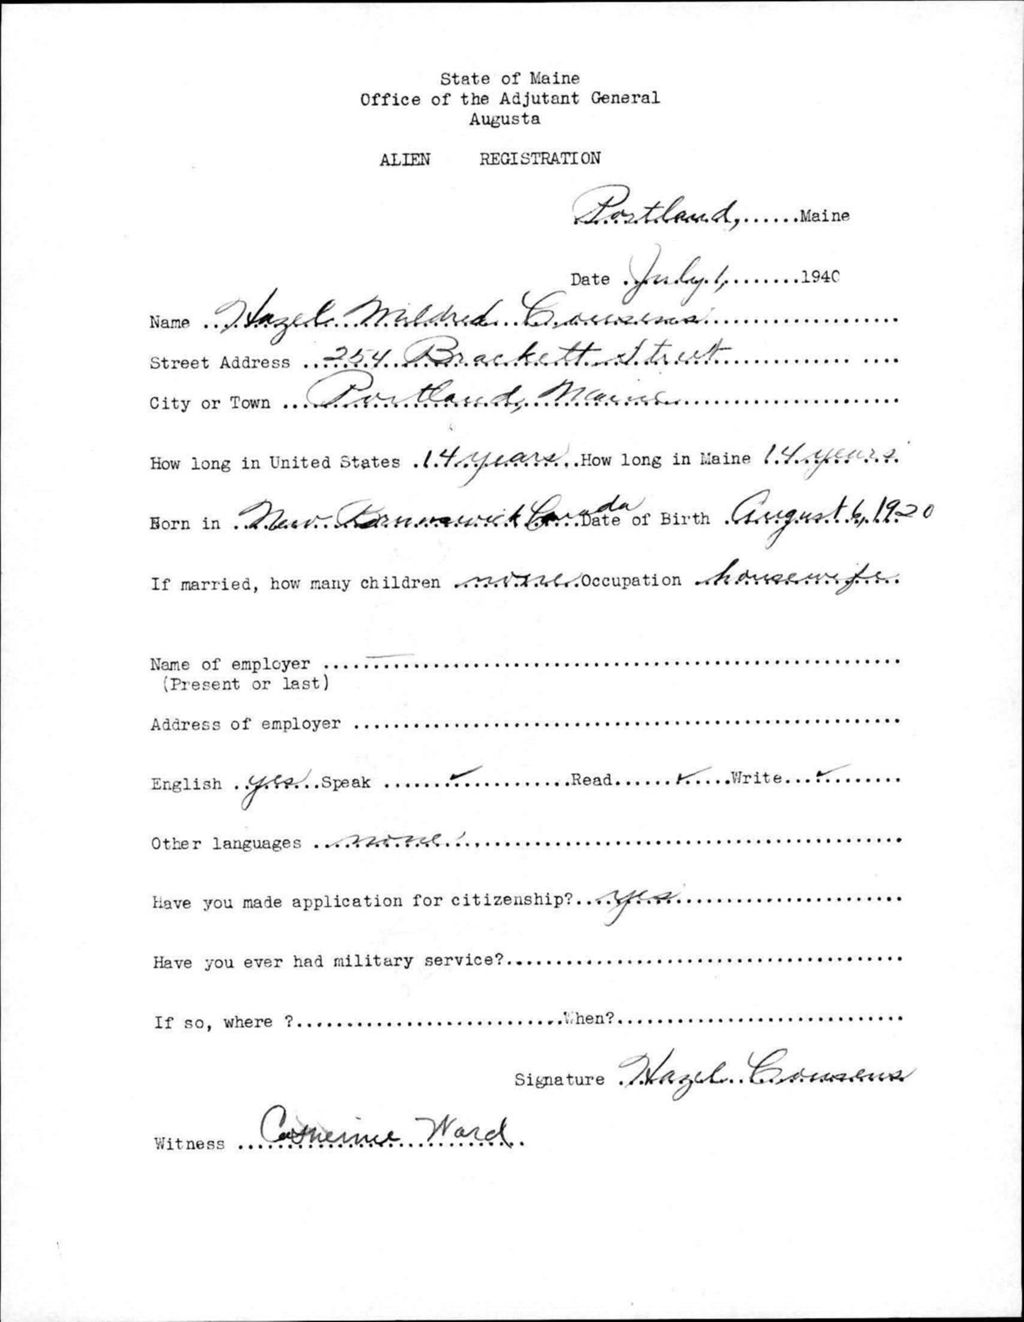 State of Maine
Office of the Adjutant General
Augusta
ALIEN REGISTRATION
Portland,......Maine
Date .July 1,........1940
Name ..Hazel Mildred Cousens....................
Street Address ...254 Brackett Street.................. ....
City or Town ...Portland, Maine......................
How long in United States .14 years..How long in Maine 14 years.
Born in .New Brunswick Canada Date of Birth .August 6, 1920
If married, how many children .none.Occupation .housewife.
Name of employer ....—..........................................
(Present or last)
Address of employer .......................................................
English .yes...Speak .......✓............Read......✓....Write...✓........
Other languages ...none.............................................
Have you made application for citizenship?...yes.......................
Have you ever had military service?........................................
If so, where ?...........................When?.............................
Signature .Hazel Cousens
Witness ..Catherine Ward.